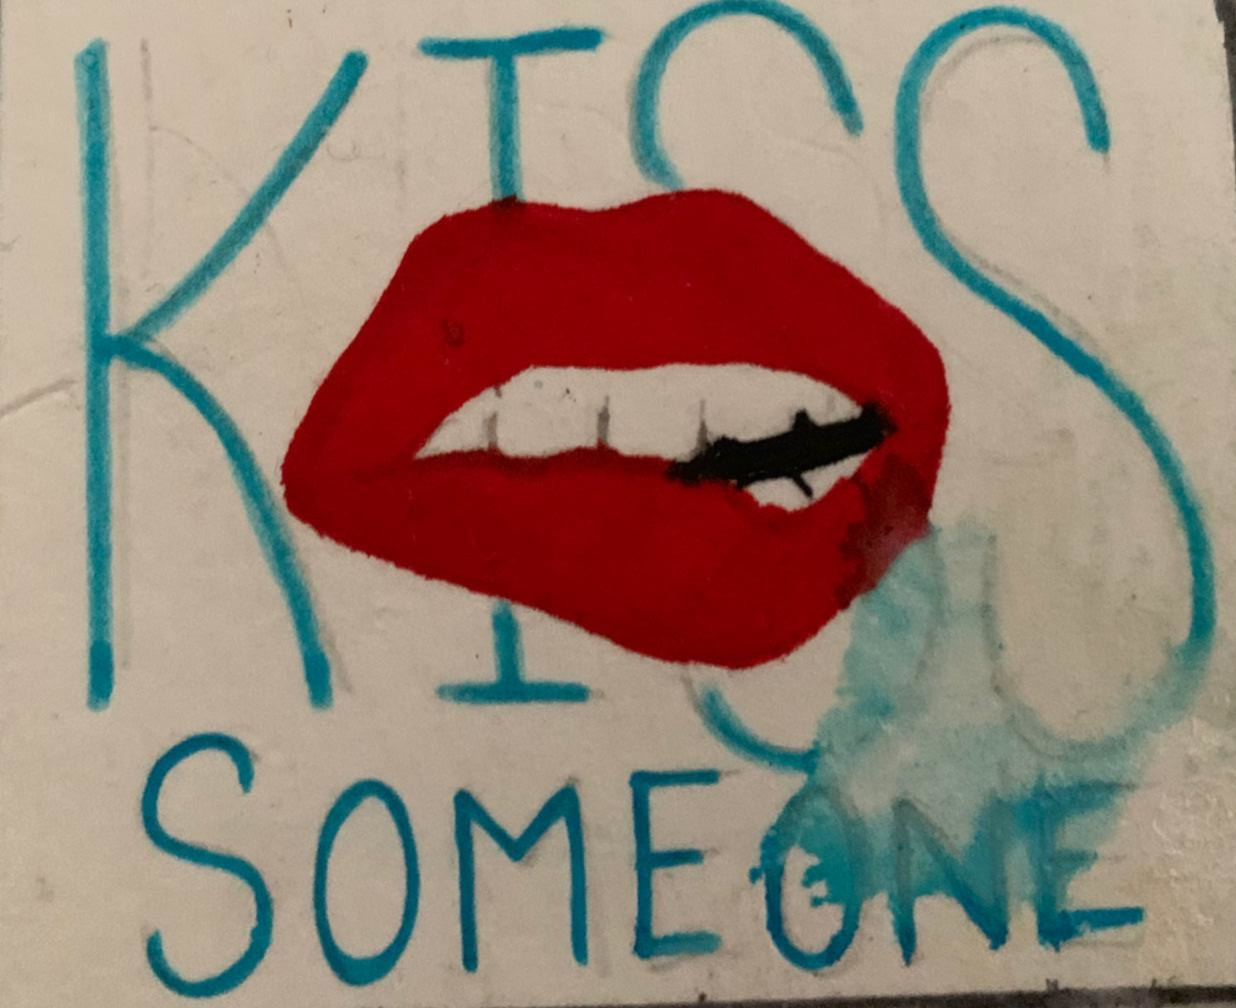 KISS
SOMEONE